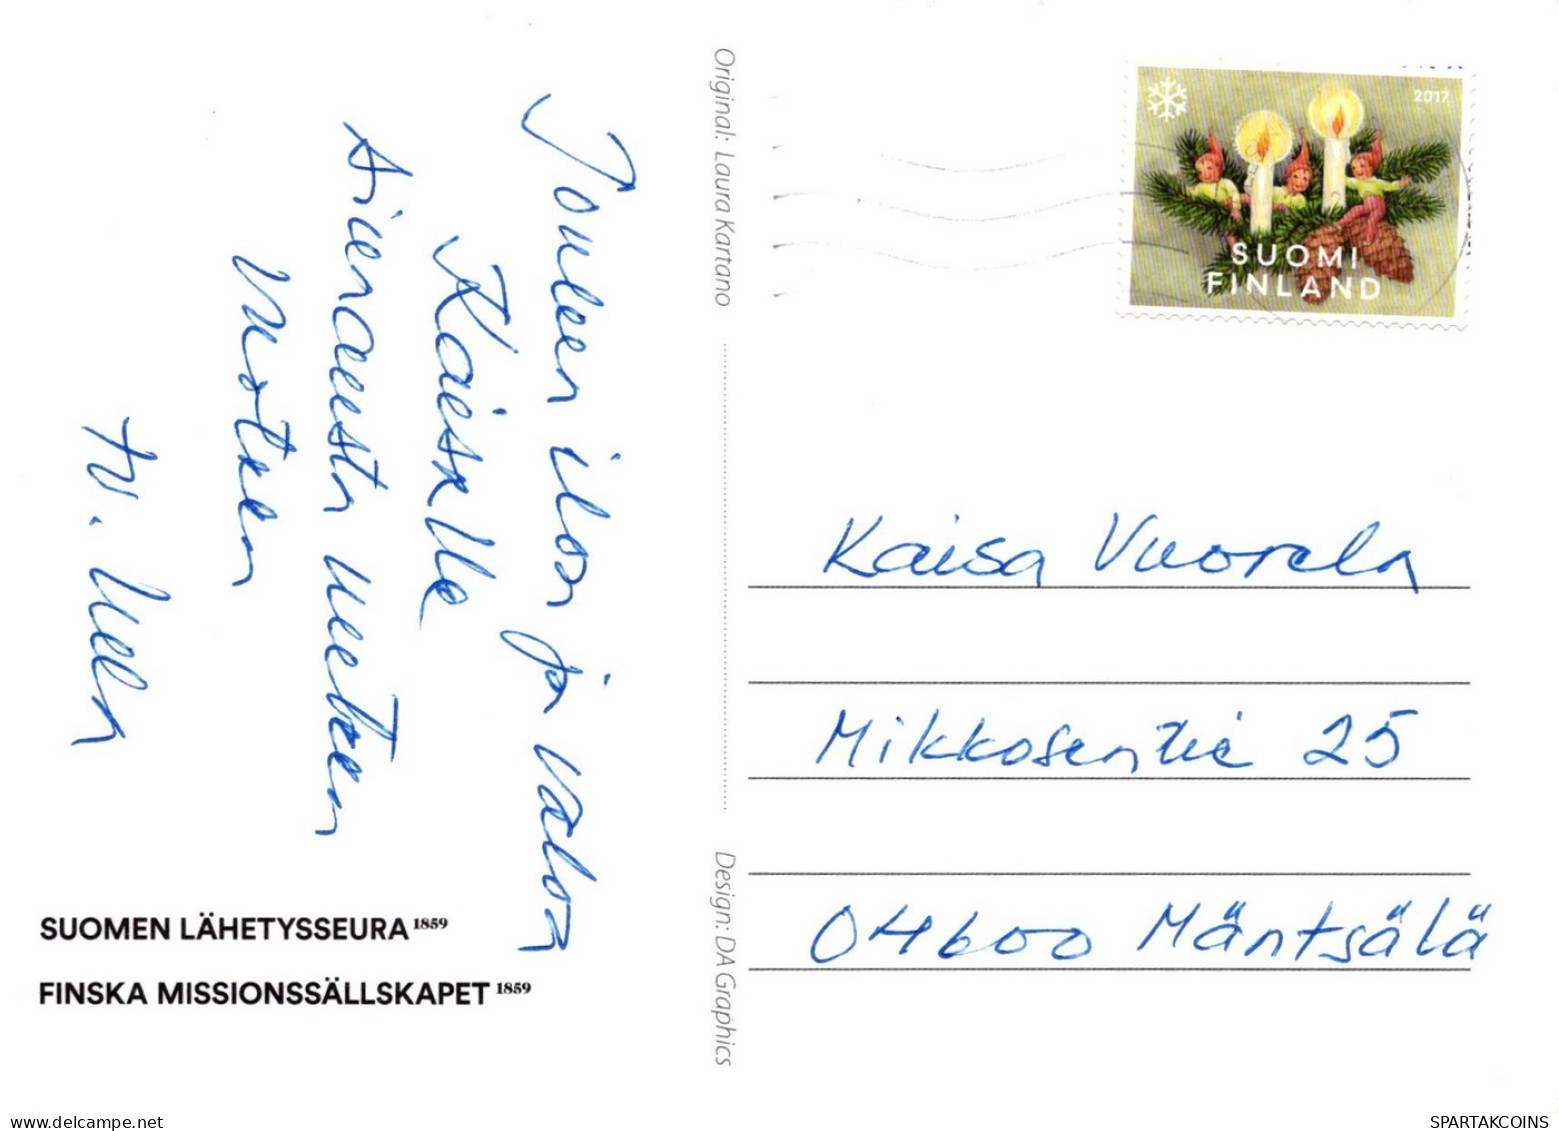 Joulun iloa ja valoa
Kaisalle
t. Ulla
SUOMEN LÄHETYSSEURA 1859
FINSKA MISSIONSSÄLLSKAPET 1859
Original: Laura Kartano
Design: DA Graphics
2017
SUOMI
FINLAND
Kaisa Vuorela
Mikkosentie 25
04600 Mäntsälä
www.delcampe.net
SPARTAKCOINS